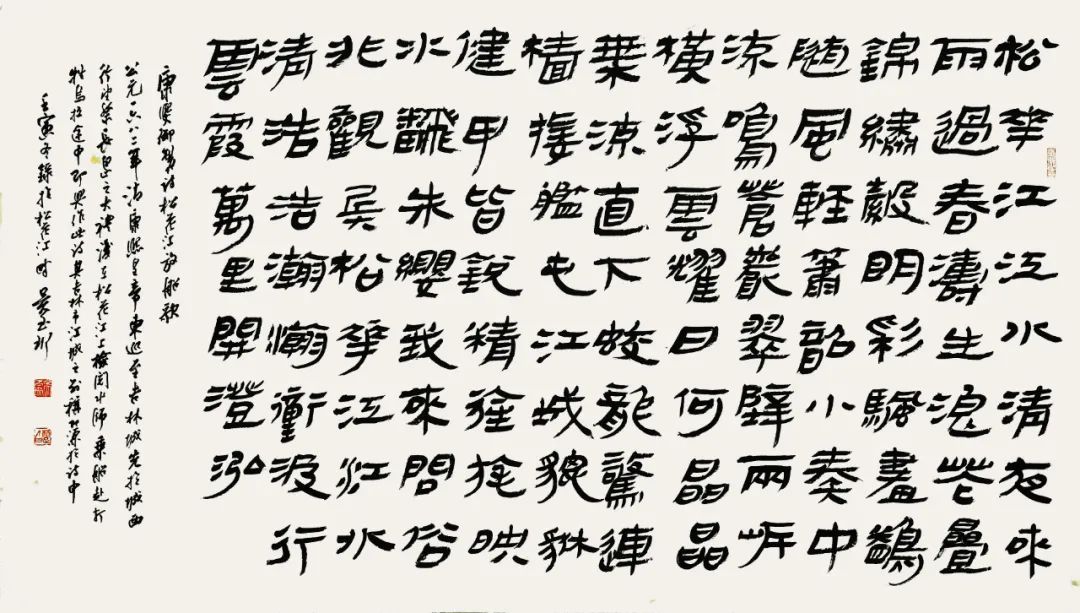 松華江江水清夜來
雨過春濤生浪花疊
錦繡縠明彩颿畫鷁
隨風輕簫韶小奏中
流鳴蒼巖翠壁兩岸
橫浮雲耀日何晶晶
乘流直下蛟龍驚連
檣接艦屯江城貔貅
健甲皆銳精旌旄映
水飜朱纓我來問俗
非觀兵松華江江水
清浩浩瀚瀚衝波行
雲霞萬里開澄泓
康熙御製詩松花江放船歌
公元一六八二年清康熙皇帝東巡至吉林城先於城西
行望祭長白之大禮後至松花江上檢閱水師乘船赴打
牲烏拉途中即興作此詩其吉林市江城之別稱源於詩中
壬寅冬錄於松花江畔